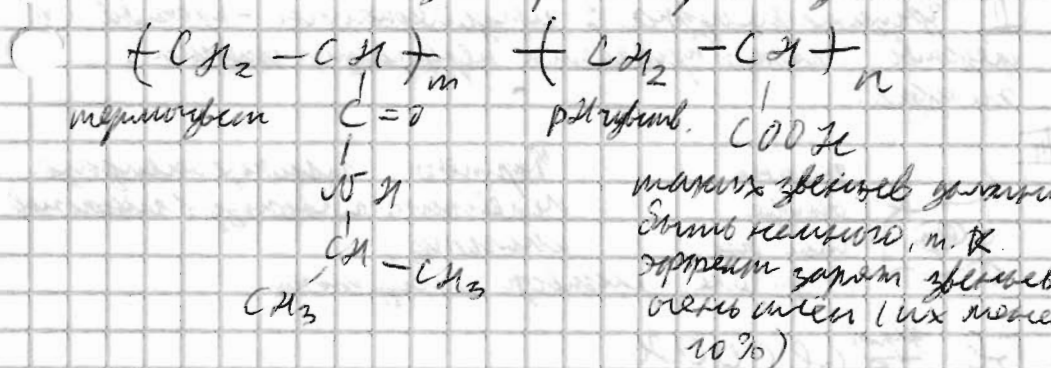 ( CH₂ – CH )ₘ ( CH₂ – CH )ₙ
термочувст C=O pHчувств. COOH
NH таких звеньев должно
CH – CH₃ быть немного, т.к.
CH₃ эффект заряж звеньев
очень силен (их мене
10%)